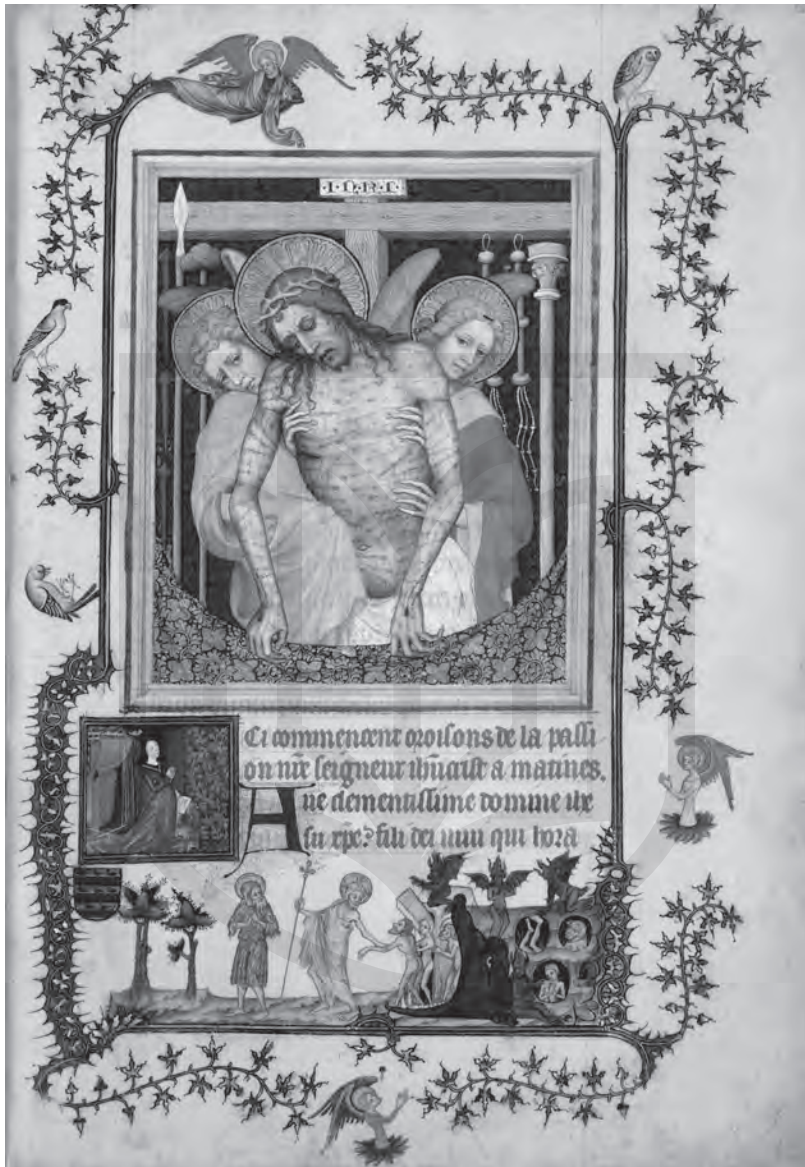 ·I·N·R·I·
Ci commencent oroisons de la passi
on nr̃e seigneur ihũcrist a matines.
Aue clementissime domine ihe
su xp̃e? fili dei uiui qui hora